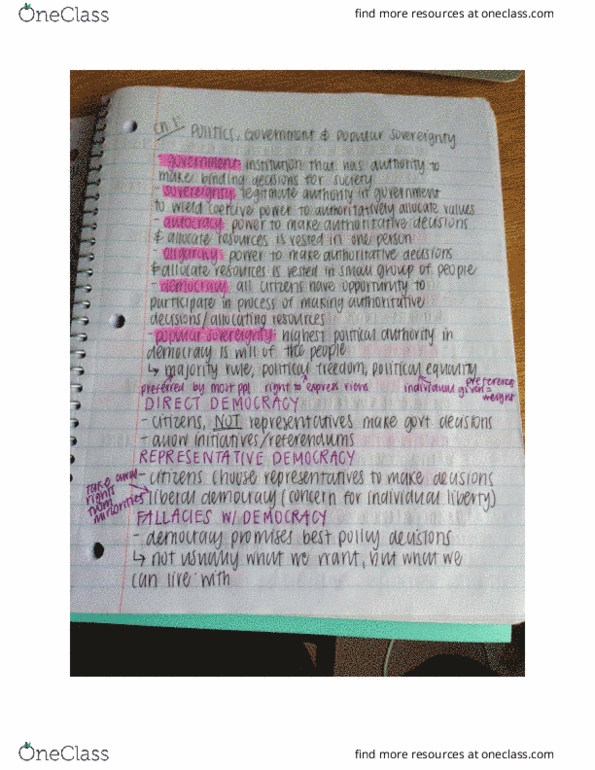 OneClass
find more resources at oneclass.com
Ch 1:
POLITICS, Government & Popular Sovereignty
- government: institution that has authority to
make binding decisions for society
- sovereignty: legitimate authority in government
to wield coercive power to authoritatively allocate values
- autocracy: power to make authoritative decisions
& allocate resources is vested in one person
- oligarchy: power to make authoritative decisions
& allocate resources is vested in small group of people
- democracy: all citizens have opportunity to
participate in process of making authoritative
decisions/allocating resources
- popular sovereignty: highest political authority in
democracy is will of the people
↳ majority rule, political freedom, political equality
preferred by most ppl right to express views individual preference given = weight
DIRECT DEMOCRACY
- citizens, NOT representatives make govt decisions
- allow initiatives/referendums
REPRESENTATIVE DEMOCRACY
- citizens choose representatives to make decisions
take away rights from minorities
liberal democracy (concern for individual liberty)
FALLACIES W/ DEMOCRACY
- democracy promises best policy decisions
↳ not usually what we want, but what we
can live with
OneClass
find more resources at oneclass.com